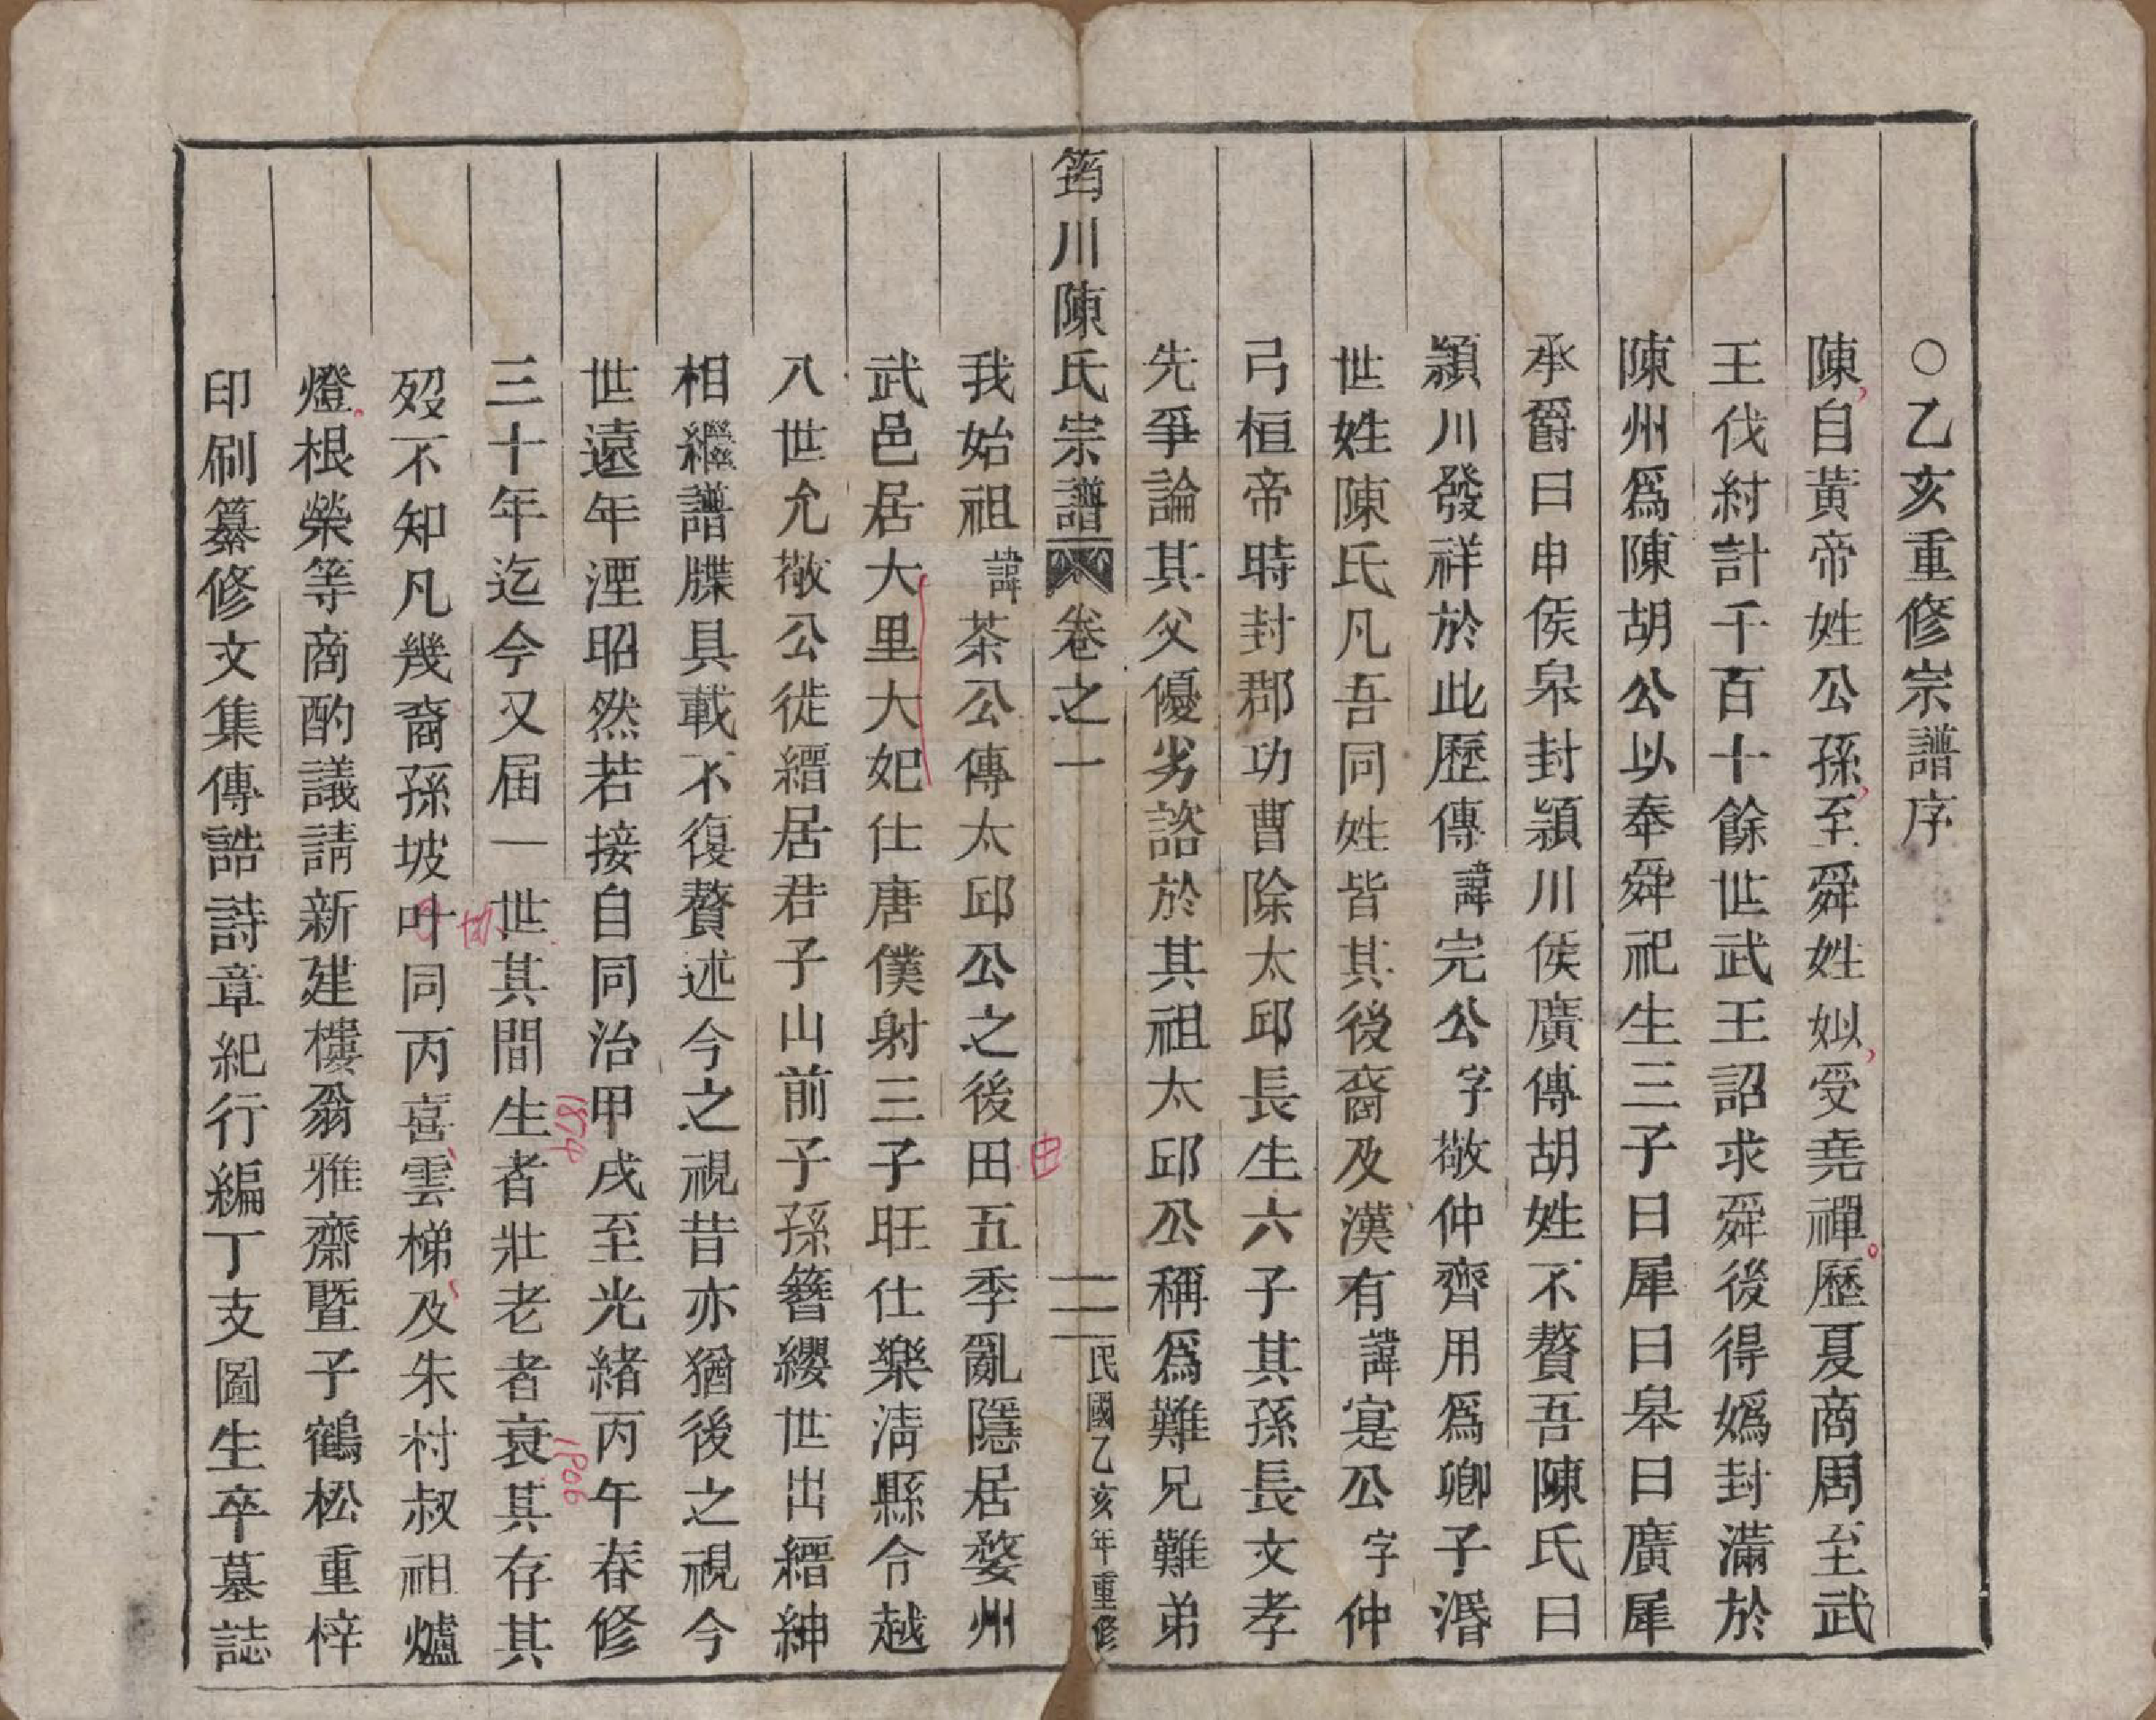 ○乙亥重修宗譜序
陳自黃帝姓公孫至舜姓姒受堯禪歷夏商周至武
王伐紂計千百十餘世武王詔求舜後得嬀封滿於
陳州爲陳胡公以奉舜祀生三子曰犀曰皋曰廣犀
承爵曰申侯皋封潁川侯廣傳胡姓不贅吾陳氏曰
潁川發祥於此歷傳諱完公字敬仲齊用爲卿子湣
世姓陳氏凡吾同姓皆其後裔及漢有諱寔公字仲
弓桓帝時封郡功曹除太邱長生六子其孫長文孝
先爭論其父優劣諮於其祖太邱公稱爲難兄難弟
筠川陳氏宗譜 卷之一 二 民國乙亥年重修
我始祖諱茶公傳太邱公之後田五季亂隱居婺州
由
武邑居大里大妃仕唐僕射三子旺仕樂淸縣令越
八世允敬公徙縉居君子山前子孫簪纓世出縉紳
相繼譜牒具載不復贅述今之視昔亦猶後之視今
世遠年湮昭然若接自同治甲戌至光緒丙午春修
1874
1906
三十年迄今又届一世其間生者壯老者衰其存其
歿不知凡幾裔孫坡叶同丙喜雲梯及朱村叔祖爐
協
燈根榮等商酌議請新建樓翁雅齋曁子鶴松重梓
印刷纂修文集傳誥詩章紀行編丁支圖生卒墓誌